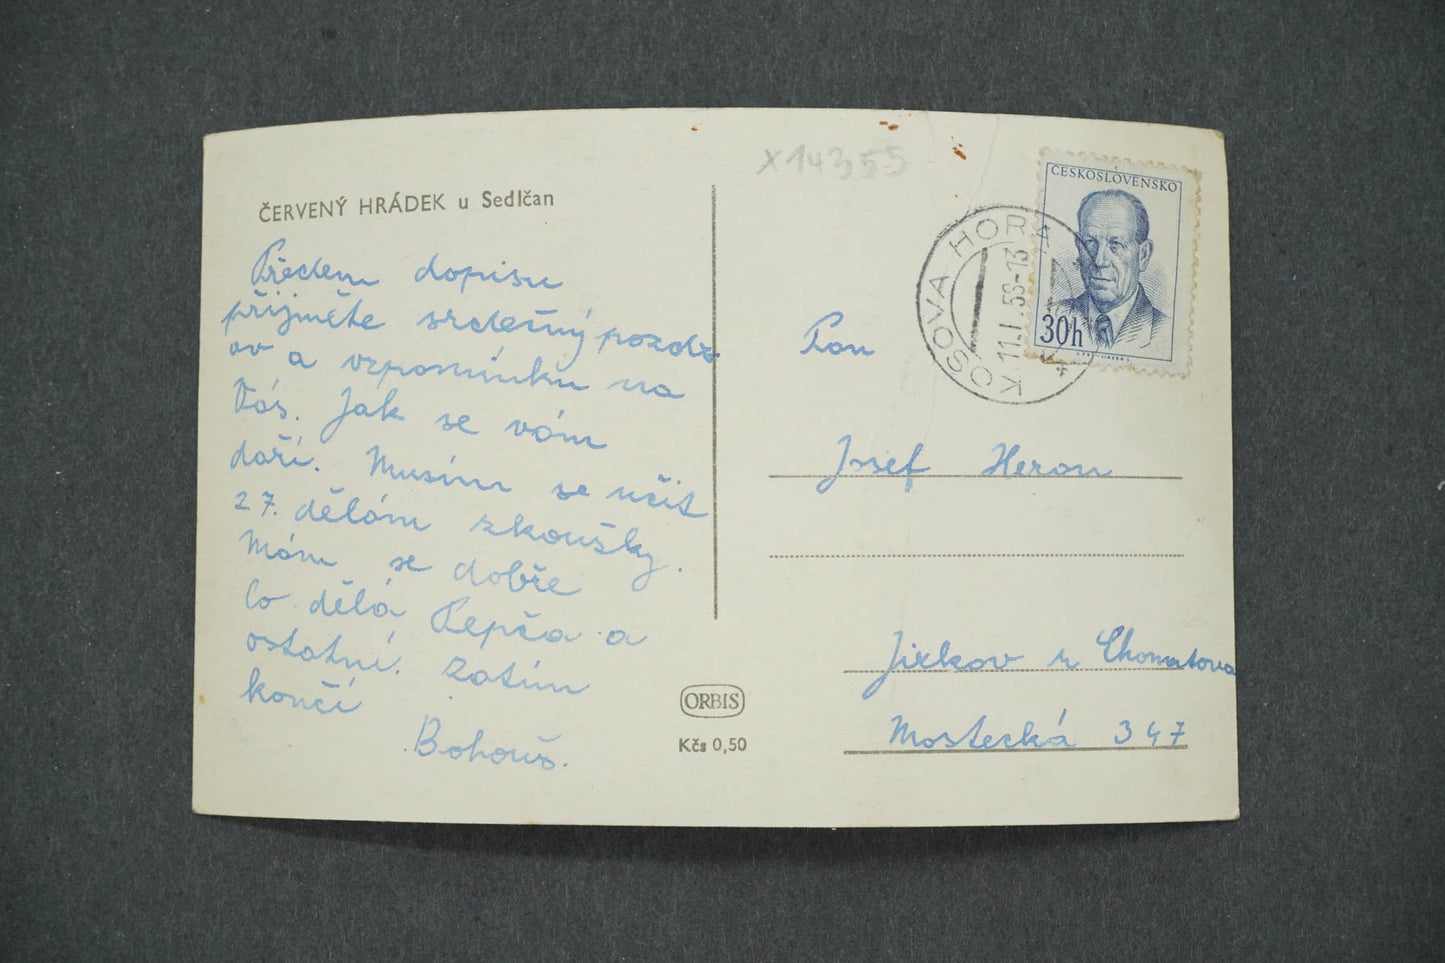 ČERVENÝ HRÁDEK u Sedlčan
Předem dopisu
přijměte srdečný pozdr
av a vzpomínku na
Vás. Jak se vám
daří. Musím se učit
27. dělám zkoušky.
Mám se dobře
Co dělá Pepča a
ostatní. Zatím
končí
Bohouš.
ORBIS
Kčs 0,50
X14355
ČESKOSLOVENSKO
30h
KOSOVA HORA
11.I.56-13
Pan
Josef Heron
Jirkov u Chomutova
Mostecká 347